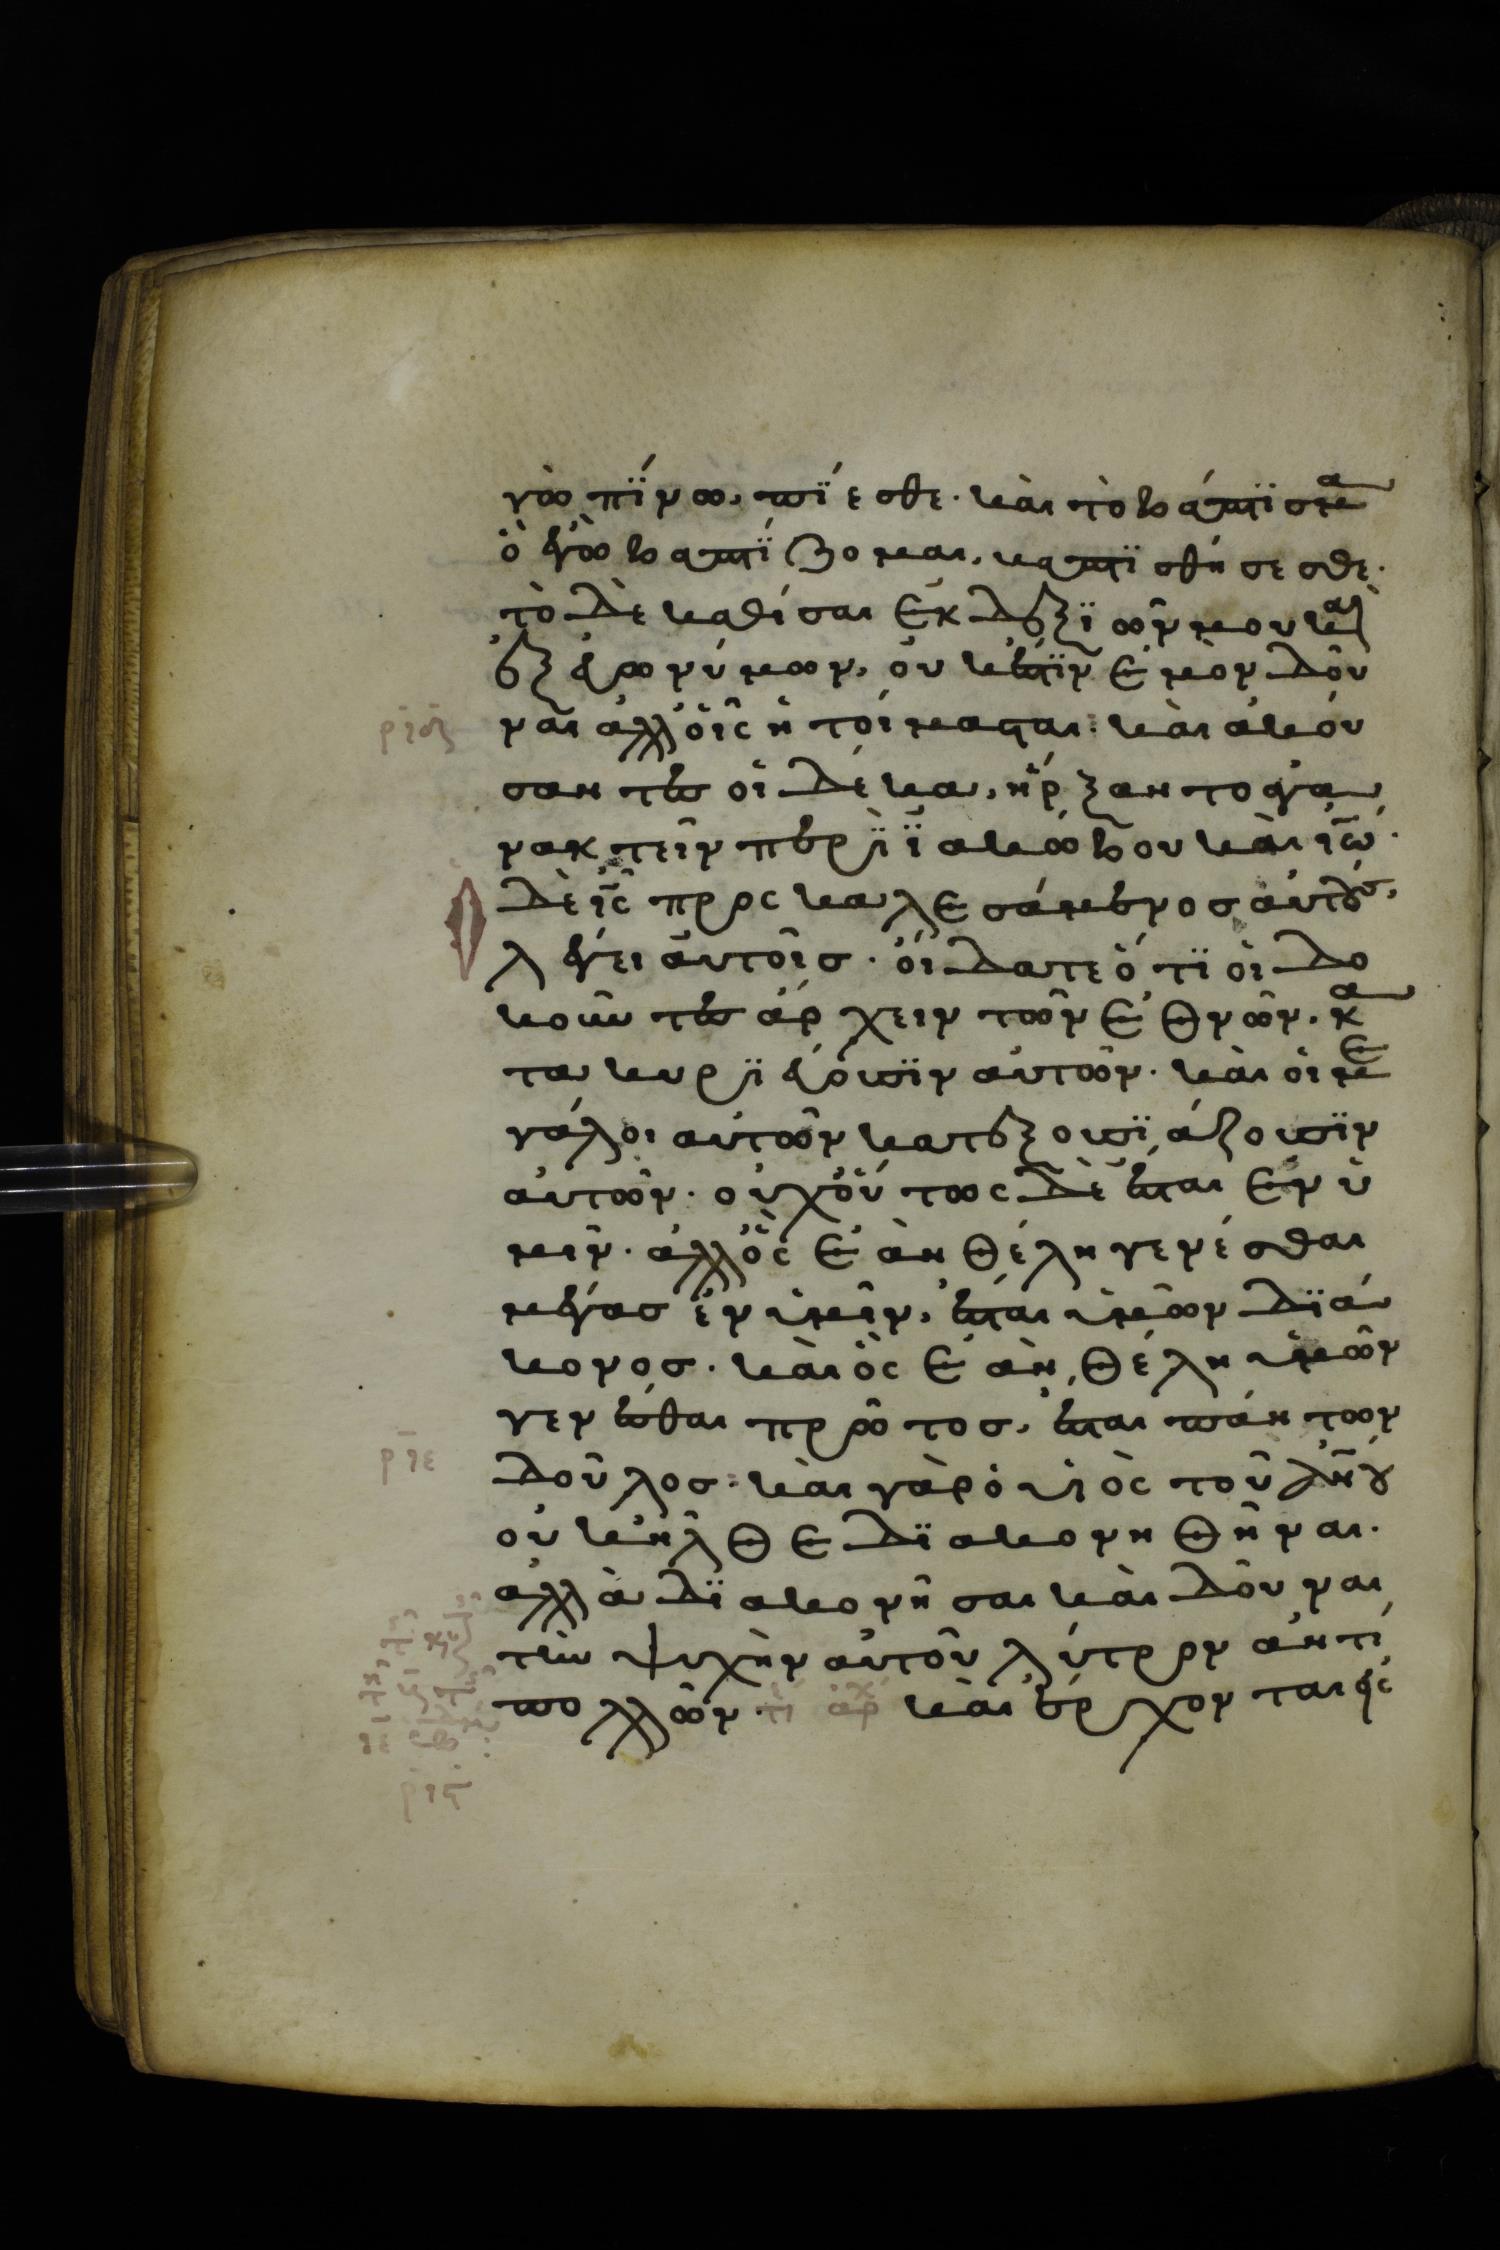 γὼ πΐνω, πΐεσθε· καὶ τὸ βάπτϊσμα
ὃ ἐγὼ βαπτΐζομαι, βαπτϊσθήσεσθε·
τὸ δὲ καθίσαι ἐκ δεξϊῶν μου καὶ
ἐξ εὐωνύμων, οὐκ ἔστϊν ἐμὸν δοῦ
ναι ἀλλ' οἷς ἡτοίμασται: καὶ ἀκού
σαντες οἱ δέκα, ἤρξαντο ἀγα
νακτεῖν περὶ ϊακώβου καὶ ἰω·
Ὁ
δὲ ἰς προσκαλεσάμενος αὐτοὺς,
λέγει αὐτοῖς· οἴδατε ὅτϊ οἱ δο
κοῦντες ἄρχειν τῶν ἐθνῶν· κα
τακυρϊεύουσϊν αὐτῶν· καὶ οἱ με
γάλοι αὐτῶν κατεξουσϊάζουσϊν
αὐτῶν· οὐχ οὕτως δὲ ἔσται ἐν ὑ
μῖν· ἀλλ' ὃς ἐὰν θέλη γενέσθαι
μέγας ἐν ὑμῖν, ἔσται ὑμῶν δϊά
κονος· καὶ ὃς ἐὰν θέλη ὑμῶν
γενέσθαι πρῶτος, ἔσται πάντων
δοῦλος: καὶ γὰρ ὁ υἱὸς τοῦ ἀνου
οὐκ ἦλθε δϊακονηθῆναι·
ἀλλὰ δϊακονῆσαι καὶ δοῦναι
τὴν ψυχὴν αὐτοῦ λύτρον ἀντὶ
πολλῶν· τὲ ἀρχ καὶ ἔρχονται εἰς
ριε
ριϛ